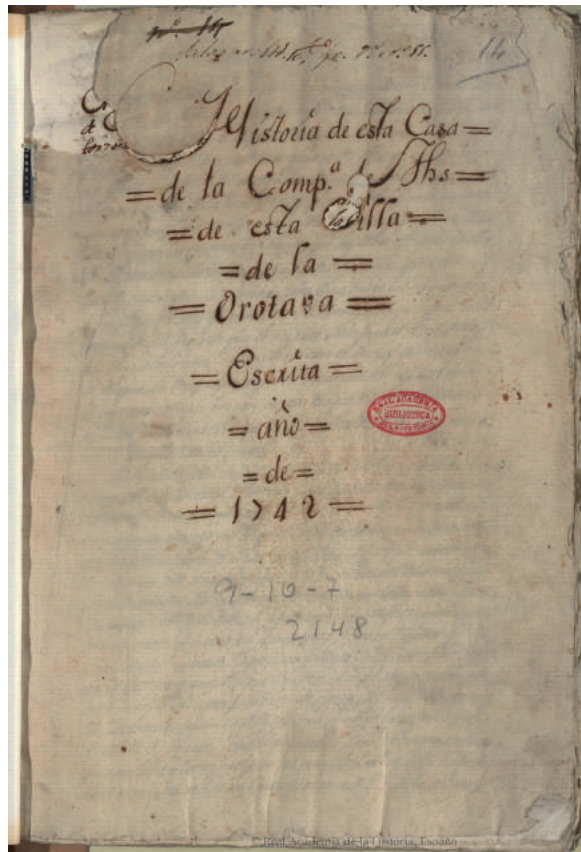 14
Historia de esta Casa =
= de la Comp.ª de Jhs =
= de esta Villa =
= de la =
= Orotava =
= Escrita =
= año =
= de =
= 1742 =
REAL ACADEMIA
BIBLIOTECA
DE LA HISTORIA
9-10-7
2148
© Real Academia de la Historia. España